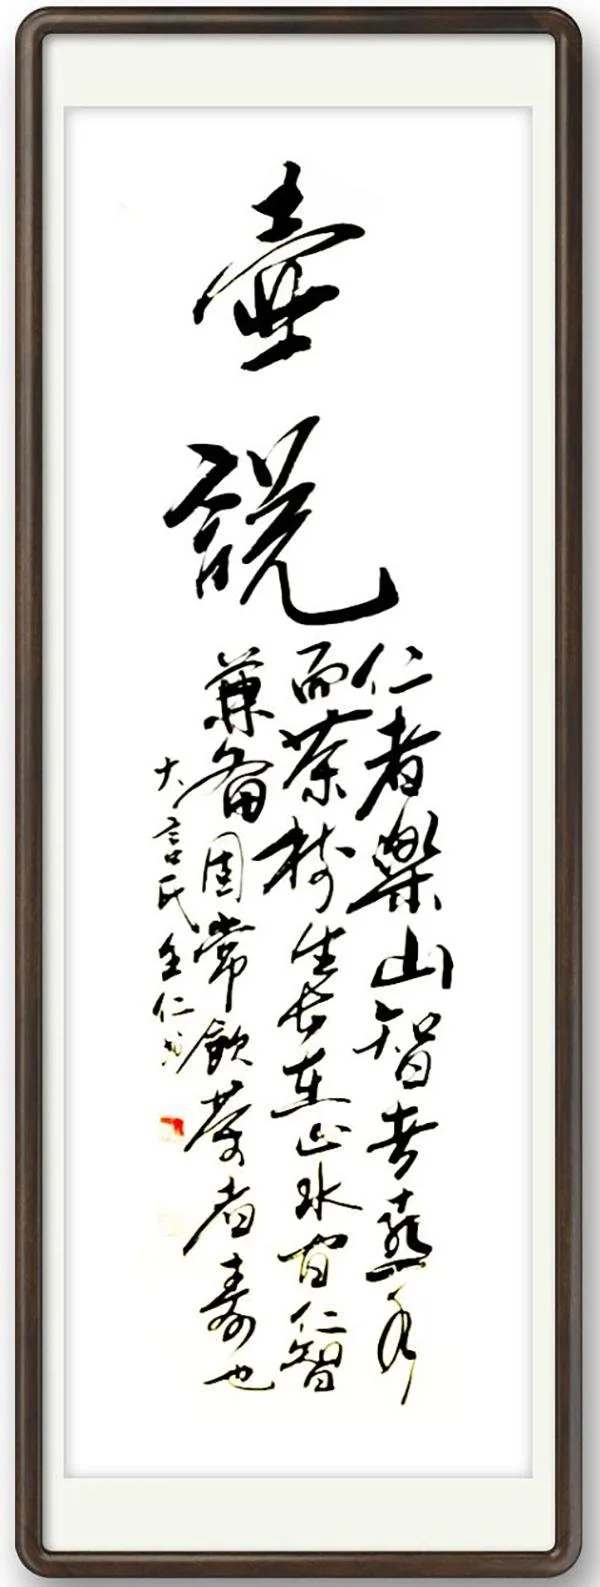 壺說
仁者樂山智者喜水
而茶樹生长在山水间仁智
兼备固常飲茶者寿也
大言氏全仁书